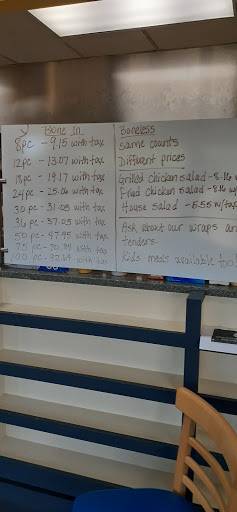 Bone In
8pc - 9.15 with tax
12pc - 13.07 with tax
18pc - 19.17 with tax
24pc - 25.06 with tax
30pc - 31.05 with tax
36pc - 37.05 with tax
50pc - 47.95 with tax
75pc - 70.84 with tax
100pc - with tax
Boneless
Same counts
Different prices
Grilled chicken salad - 8.16
Fried chicken salad - 8.16 w/
House salad - 5.55 w/tax
Ask about our wraps an
tenders.
Kids meals available too!